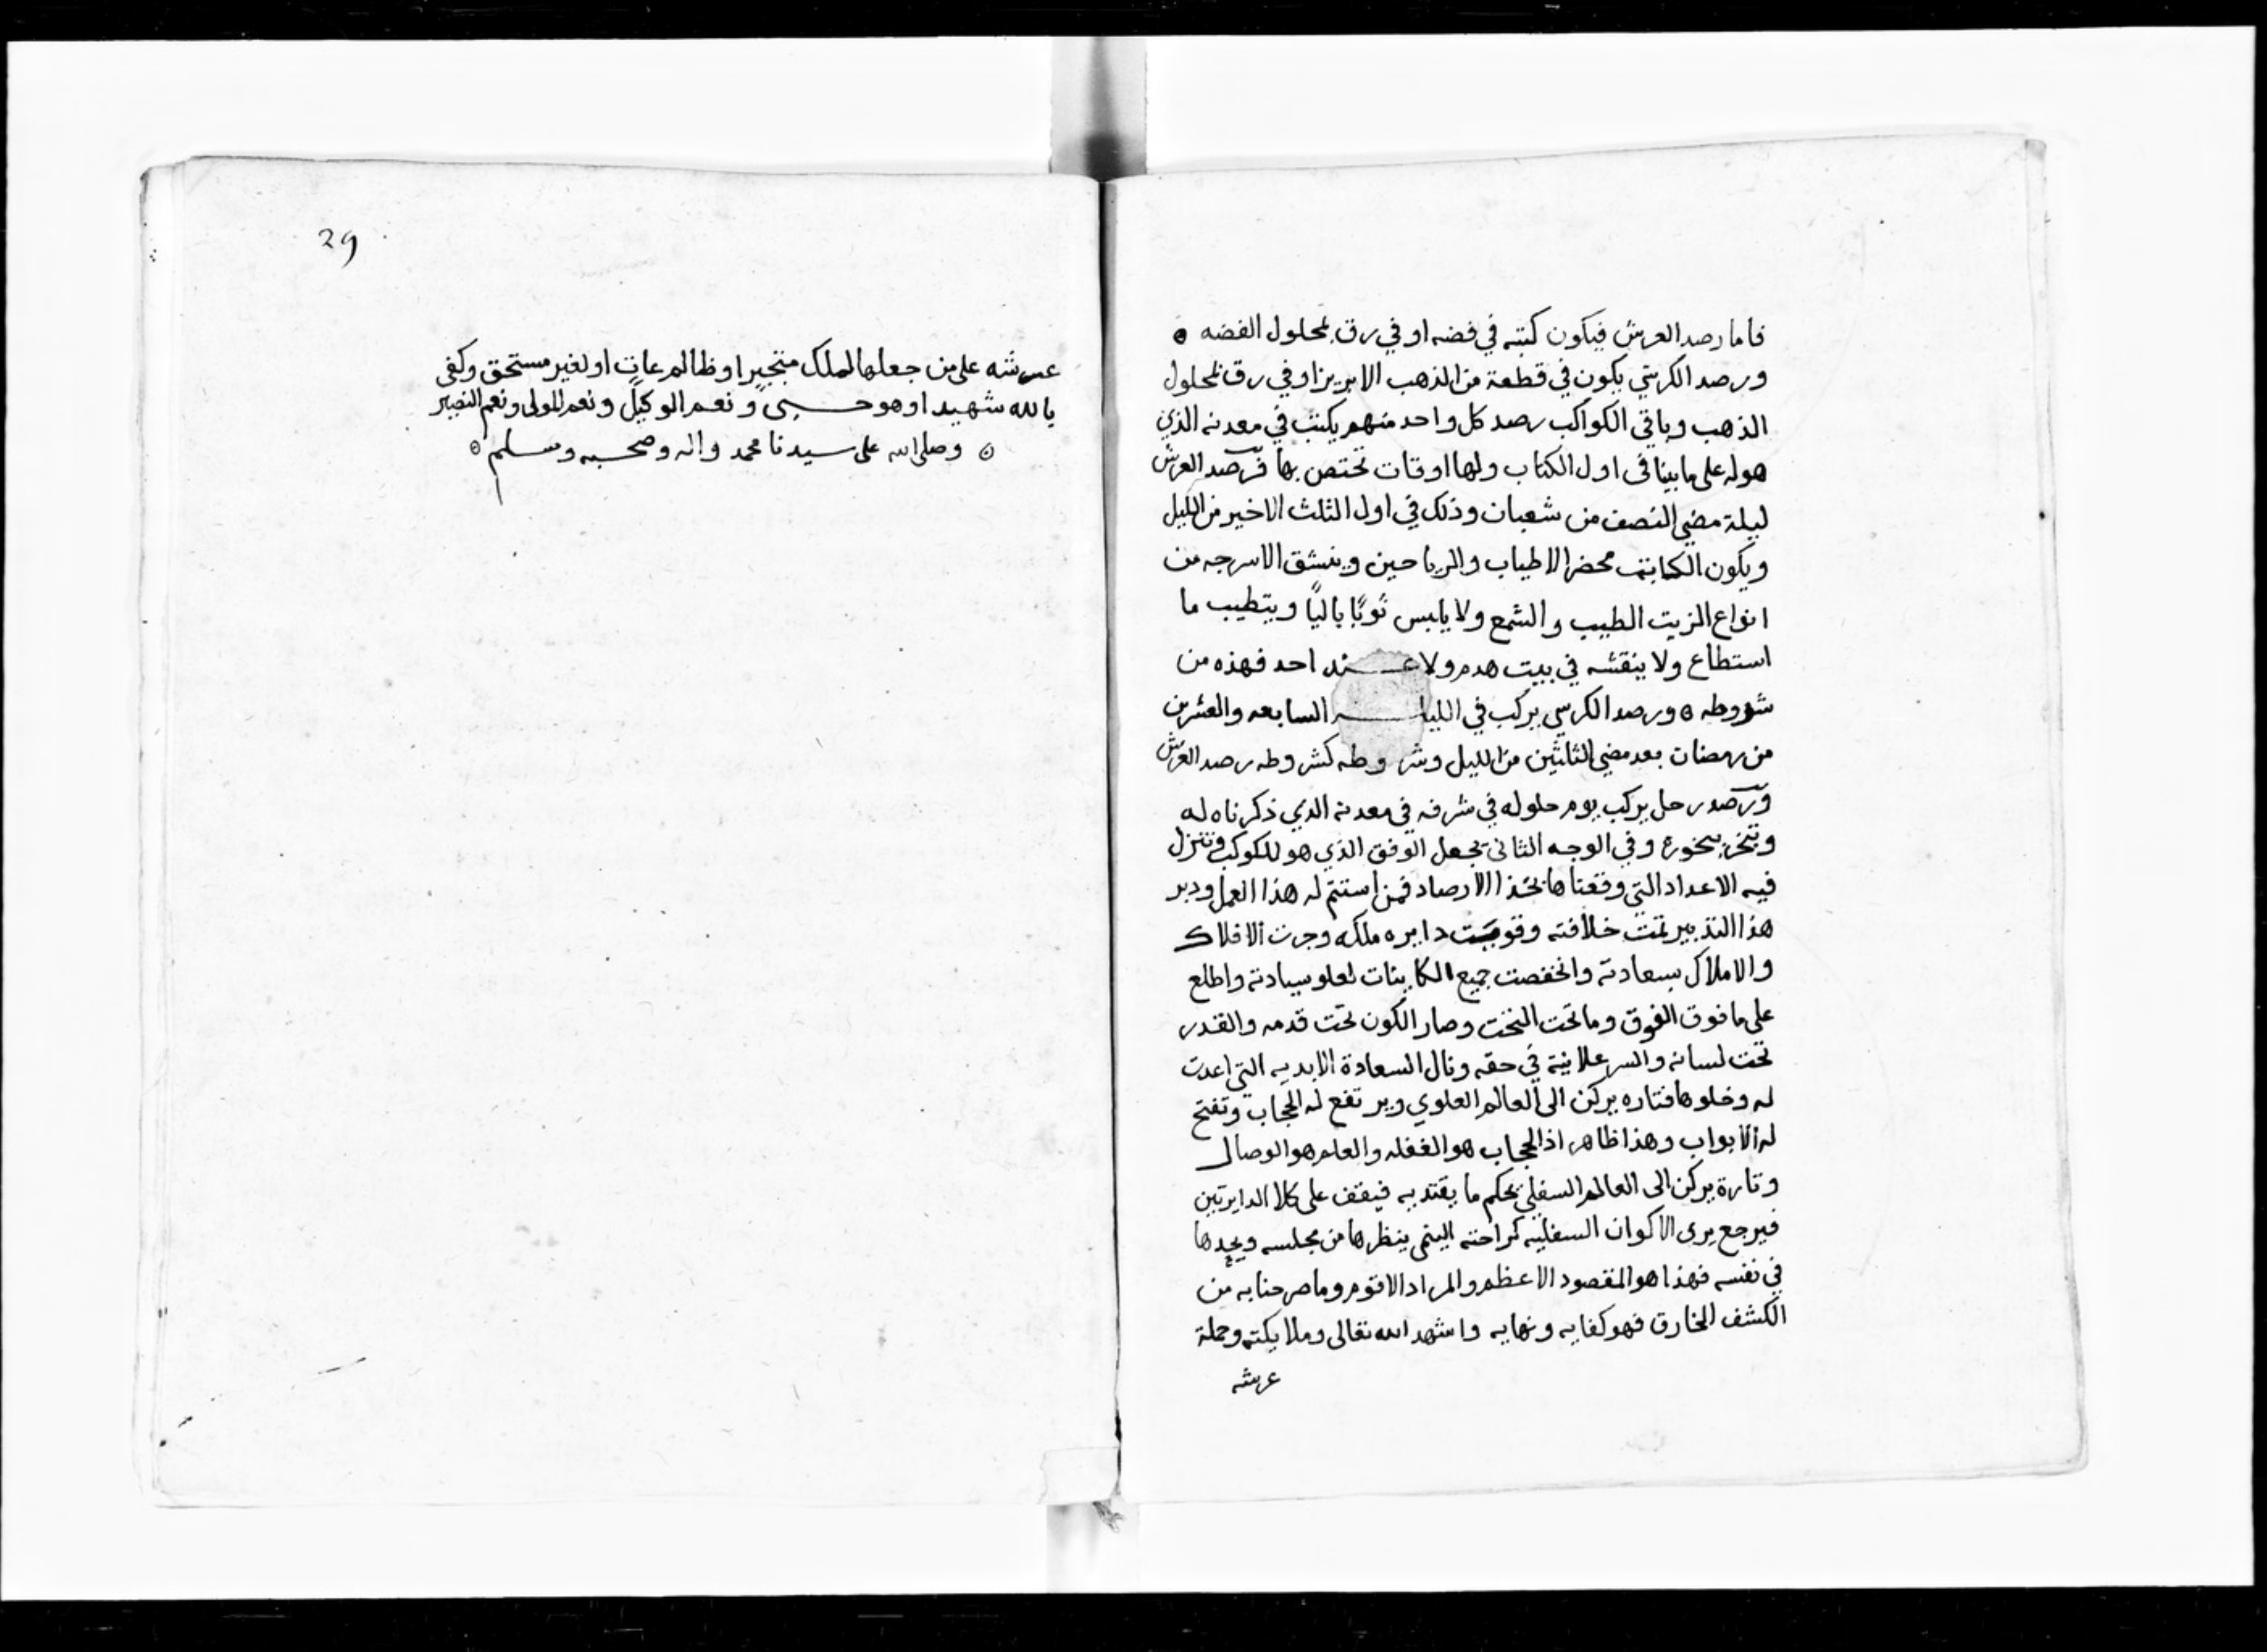 فاما رصد العرش فيكون كتبه في فضه او في رق بمحلول الفضه ه
ورصد الكرسي يكون في قطعة من الذهب الابريز او في رق بمحلول
الذهب وباقي الكواكب رصد كل واحد منهم يكتب في معدنه الذي
هو له على ما بينا في اول الكتاب ولها اوقات تختص بها فرصد العرش
ليلة مضي النصف من شعبان وذلك في اول الثلث الاخير من الليل
ويكون الكاتب محضر الاطياب والرياحين وينشق الاسرجه من
انواع الزيت الطيب والشمع ولا يلبس ثوبًا باليًا ويتطيب ما
استطاع ولا ينقشه في بيت هدم ولا عند احد فهذه من
شروطه ه ورصد الكرسي يركب في الليله السابعه والعشرين
من رمضان بعد مضي الثلثين من الليل وشروطه كشروطه رصد العرش
ورصد زحل يركب يوم حلوله في شرفه في معدنه الذي ذكرناه له
وتبخر ببخوره وفي الوجه الثاني يجعل الوفق الذي هو للكوكب وتنزل
فيه الاعداد التي وقعناها بخذا الارصاد فمن استتم له هذا العمل ودبر
هذا التدبير تمت خلافته وقويت دايره ملكه وجرت الافلاك
والاملاك بسعادته وانخفصت جميع الكاينات لعلو سيادته واطلع
على ما فوق الفوق وما تحت التخت وصار الكون تحت قدمه والقدر
تحت لسانه والسر علانية في حقه ونال السعادة الابديه التي اعدت
له وخلوها فتاره يركن الى العالم العلوي ويرتفع له الحجاب وتفتح
له الابواب وهذا ظاهر اذ الحجاب هو الغفله والعلم هو الوصال
وتارة يركن الى العالم السفلي بحكم ما يقتديه فيقف على كلا الدايرتين
فيرجع يرى الاكوان السفليه كراحته اليمنى ينظرها من مجلسه ويجدها
في نفسه فهذا هو المقصود الاعظم والمراد الاقوم وما صرحنا به من
الكشف الخارق فهو كفايه ونهايه واشهد الله تعالى وملايكته وحملة
عرشه
39
عرشه على من جعلها لملك متجبر او ظالم عات او لغير مستحق وكفى
بالله شهيدا وهو حسبى ونعم الوكيل ونعم المولى ونعم النصير
ه وصلى الله على سيدنا محمد واله وصحبه وسلم ه